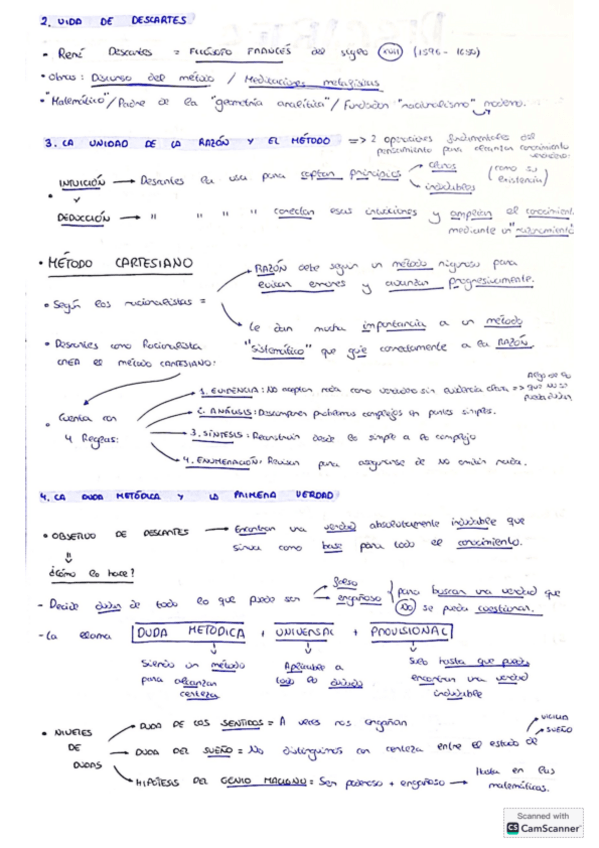 2. VIDA DE DESCARTES
• René Descartes = FILÓSOFO FRANCÉS del siglo XVII (1596 - 1650)
• Obras: Discurso del método / Meditaciones metafísicas
• "Matemático" / Padre de la "geometría analítica" / Fundador "racionalismo" moderno.
3. LA UNIDAD DE LA RAZÓN Y EL MÉTODO => 2 operaciones fundamentales del
pensamiento para alcanzar conocimiento
verdadero:
• INTUICIÓN → Descartes la usa para captar principios → claros
→ indudables
(como su existencia)
Y
DEDUCCIÓN → " " " " conectan esas intuiciones y amplían el conocimient.
mediante un "razonamiento"
• MÉTODO CARTESIANO
• Según los racionalistas =
→ RAZÓN debe seguir un método riguroso para
evitar errores y avanzar progresivamente.
→ Le dan mucha importancia a un método
"sistemático" que guíe correctamente a la RAZÓN.
• Descartes como Racionalista
CREA el método CARTESIANO:
• Cuenta con
4 Reglas:
1. EVIDENCIA: NO aceptar nada como verdadero sin evidencia clara =>
Algo de lo
que NO se
pueda dudar
2. ANÁLISIS: Descomponer problemas complejos en partes simples.
3. SÍNTESIS: Reconstruir desde lo simple a lo complejo
4. ENUMERACIÓN: Revisar para asegurarse de NO omitir nada.
4. LA DUDA METÓDICA Y LA PRIMERA VERDAD
• OBJETIVO DE DESCARTES → Encontrar una verdad absolutamente indudable que
sirva como base para todo el conocimiento.
¿Cómo lo hace?
- Decide dudar de todo lo que puede ser → falso
→ engañoso
para buscar una verdad que
NO se pueda cuestionar.
- La llama DUDA METÓDICA, UNIVERSAL + PROVISIONAL
Siendo un método
para alcanzar
certeza
Aplicable a
todo lo dudoso
Solo hasta que pueda
encontrar una verdad
indudable
• NIVELES
DE
DUDAS
→ DUDA DE LOS SENTIDOS = A veces nos engañan
→ DUDA DEL SUEÑO = No distinguimos con certeza entre el estado de
→ VIGILIA
→ SUEÑO
→ HIPÓTESIS DEL GENIO MALIGNO = Ser poderoso + engañoso →
Hasta en las
matemáticas.
Scanned with
CS CamScanner